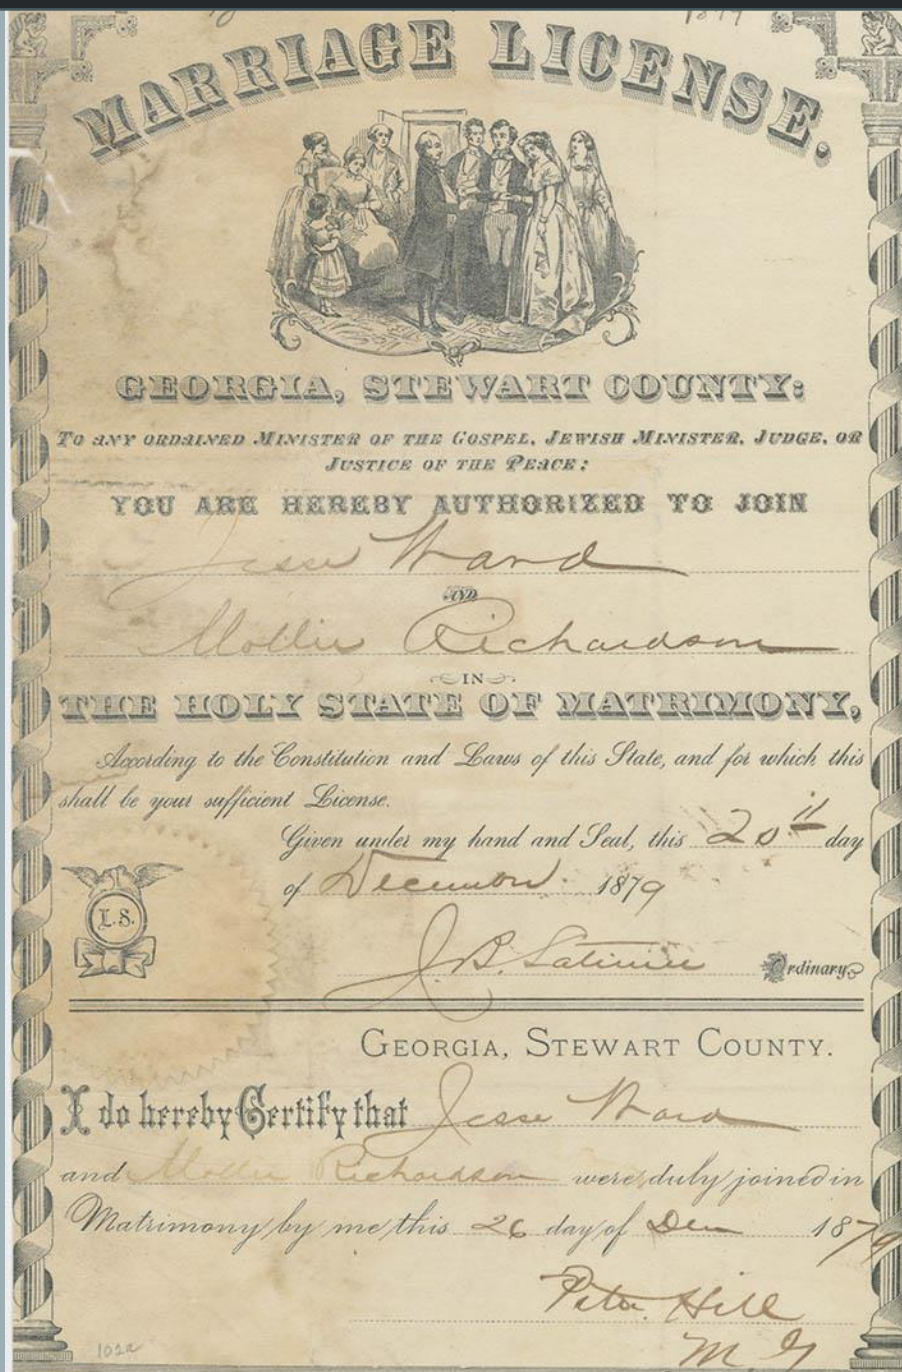 1879
MARRIAGE LICENSE.
GEORGIA, STEWART COUNTY:
TO ANY ORDAINED MINISTER OF THE GOSPEL, JEWISH MINISTER, JUDGE, OR
JUSTICE OF THE PEACE:
YOU ARE HEREBY AUTHORIZED TO JOIN
Jesse Ward
AND
Mollie Richardson
IN
THE HOLY STATE OF MATRIMONY,
According to the Constitution and Laws of this State, and for which this
shall be your sufficient License.
Given under my hand and Seal, this 20th day
of December 1879
L.S.
J. B. Latimer Ordinary
GEORGIA, STEWART COUNTY.
I do hereby Certify that Jesse Ward
and Mollie Richardson were duly joined in
Matrimony by me this 26 day of Dec 1879
Peter Hill
M. G
102a